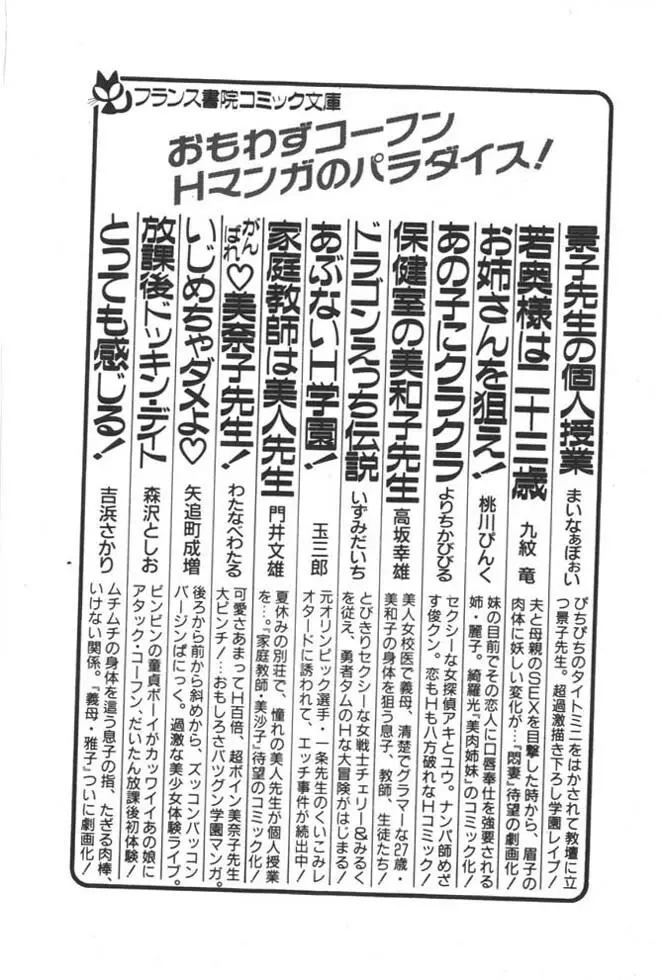 フランス書院コミック文庫
おもわずコーフン
Hマンガのパラダイス!
景子先生の個人授業 まいなぁぼぉい
ぴちぴちのタイトミニをはかされて教壇に立
つ景子先生。超過激描き下ろし学園レイプ!
若奥様は二十三歳 九紋 竜
夫と母親のSEXを目撃した時から、眉子の
肉体に妖しい変化が…『悶妻』待望の劇画化!
お姉さんを狙え! 桃川ぴんく
妹の目前でその恋人に口唇奉仕を強要される
姉・麗子。綺羅光『美肉姉妹』のコミック化!
あの子にクラクラ よりちかびびる
セクシーな女探偵アキとユウ。ナンパ師めざ
す俊クン。恋もHも八方破れなHコミック!
保健室の美和子先生 高坂幸雄
美人女校医で義母、清楚でグラマーな27歳・
美和子の身体を狙う息子、教師、生徒たち!
ドラゴンえっち伝説 いずみだいち
とびきりセクシーな女戦士チェリー&みるく
を従え、勇者タムのHな大冒険がはじまる!
あぶないH学園! 玉三郎
元オリンピック選手・一条先生のくいこみレ
オタードに誘われて、エッチ事件が続出中!
家庭教師は美人先生 門井文雄
夏休みの別荘で、憧れの美人先生が個人授業
を…。『家庭教師・美沙子』待望のコミック化!
がんばれ♡美奈子先生! わたなべわたる
可愛さあまってH百倍、超ボイン美奈子先生
大ピンチ!…おもしろさバツグン学園マンガ。
いじめちゃダメよ♡ 矢追町成増
後ろから前から斜めから、ズッコンバッコン
バージンぱにっく。過激な美少女体験ライブ。
放課後ドッキン・デイト 森沢としお
ビンビンの童貞ボーイがカッワイイあの娘に
アタック・コーフン、だいたん放課後初体験!
とっても感じる! 吉浜さかり
ムチムチの身体を這う息子の指、たぎる肉棒、
いけない関係。『義母・雅子』ついに劇画化!